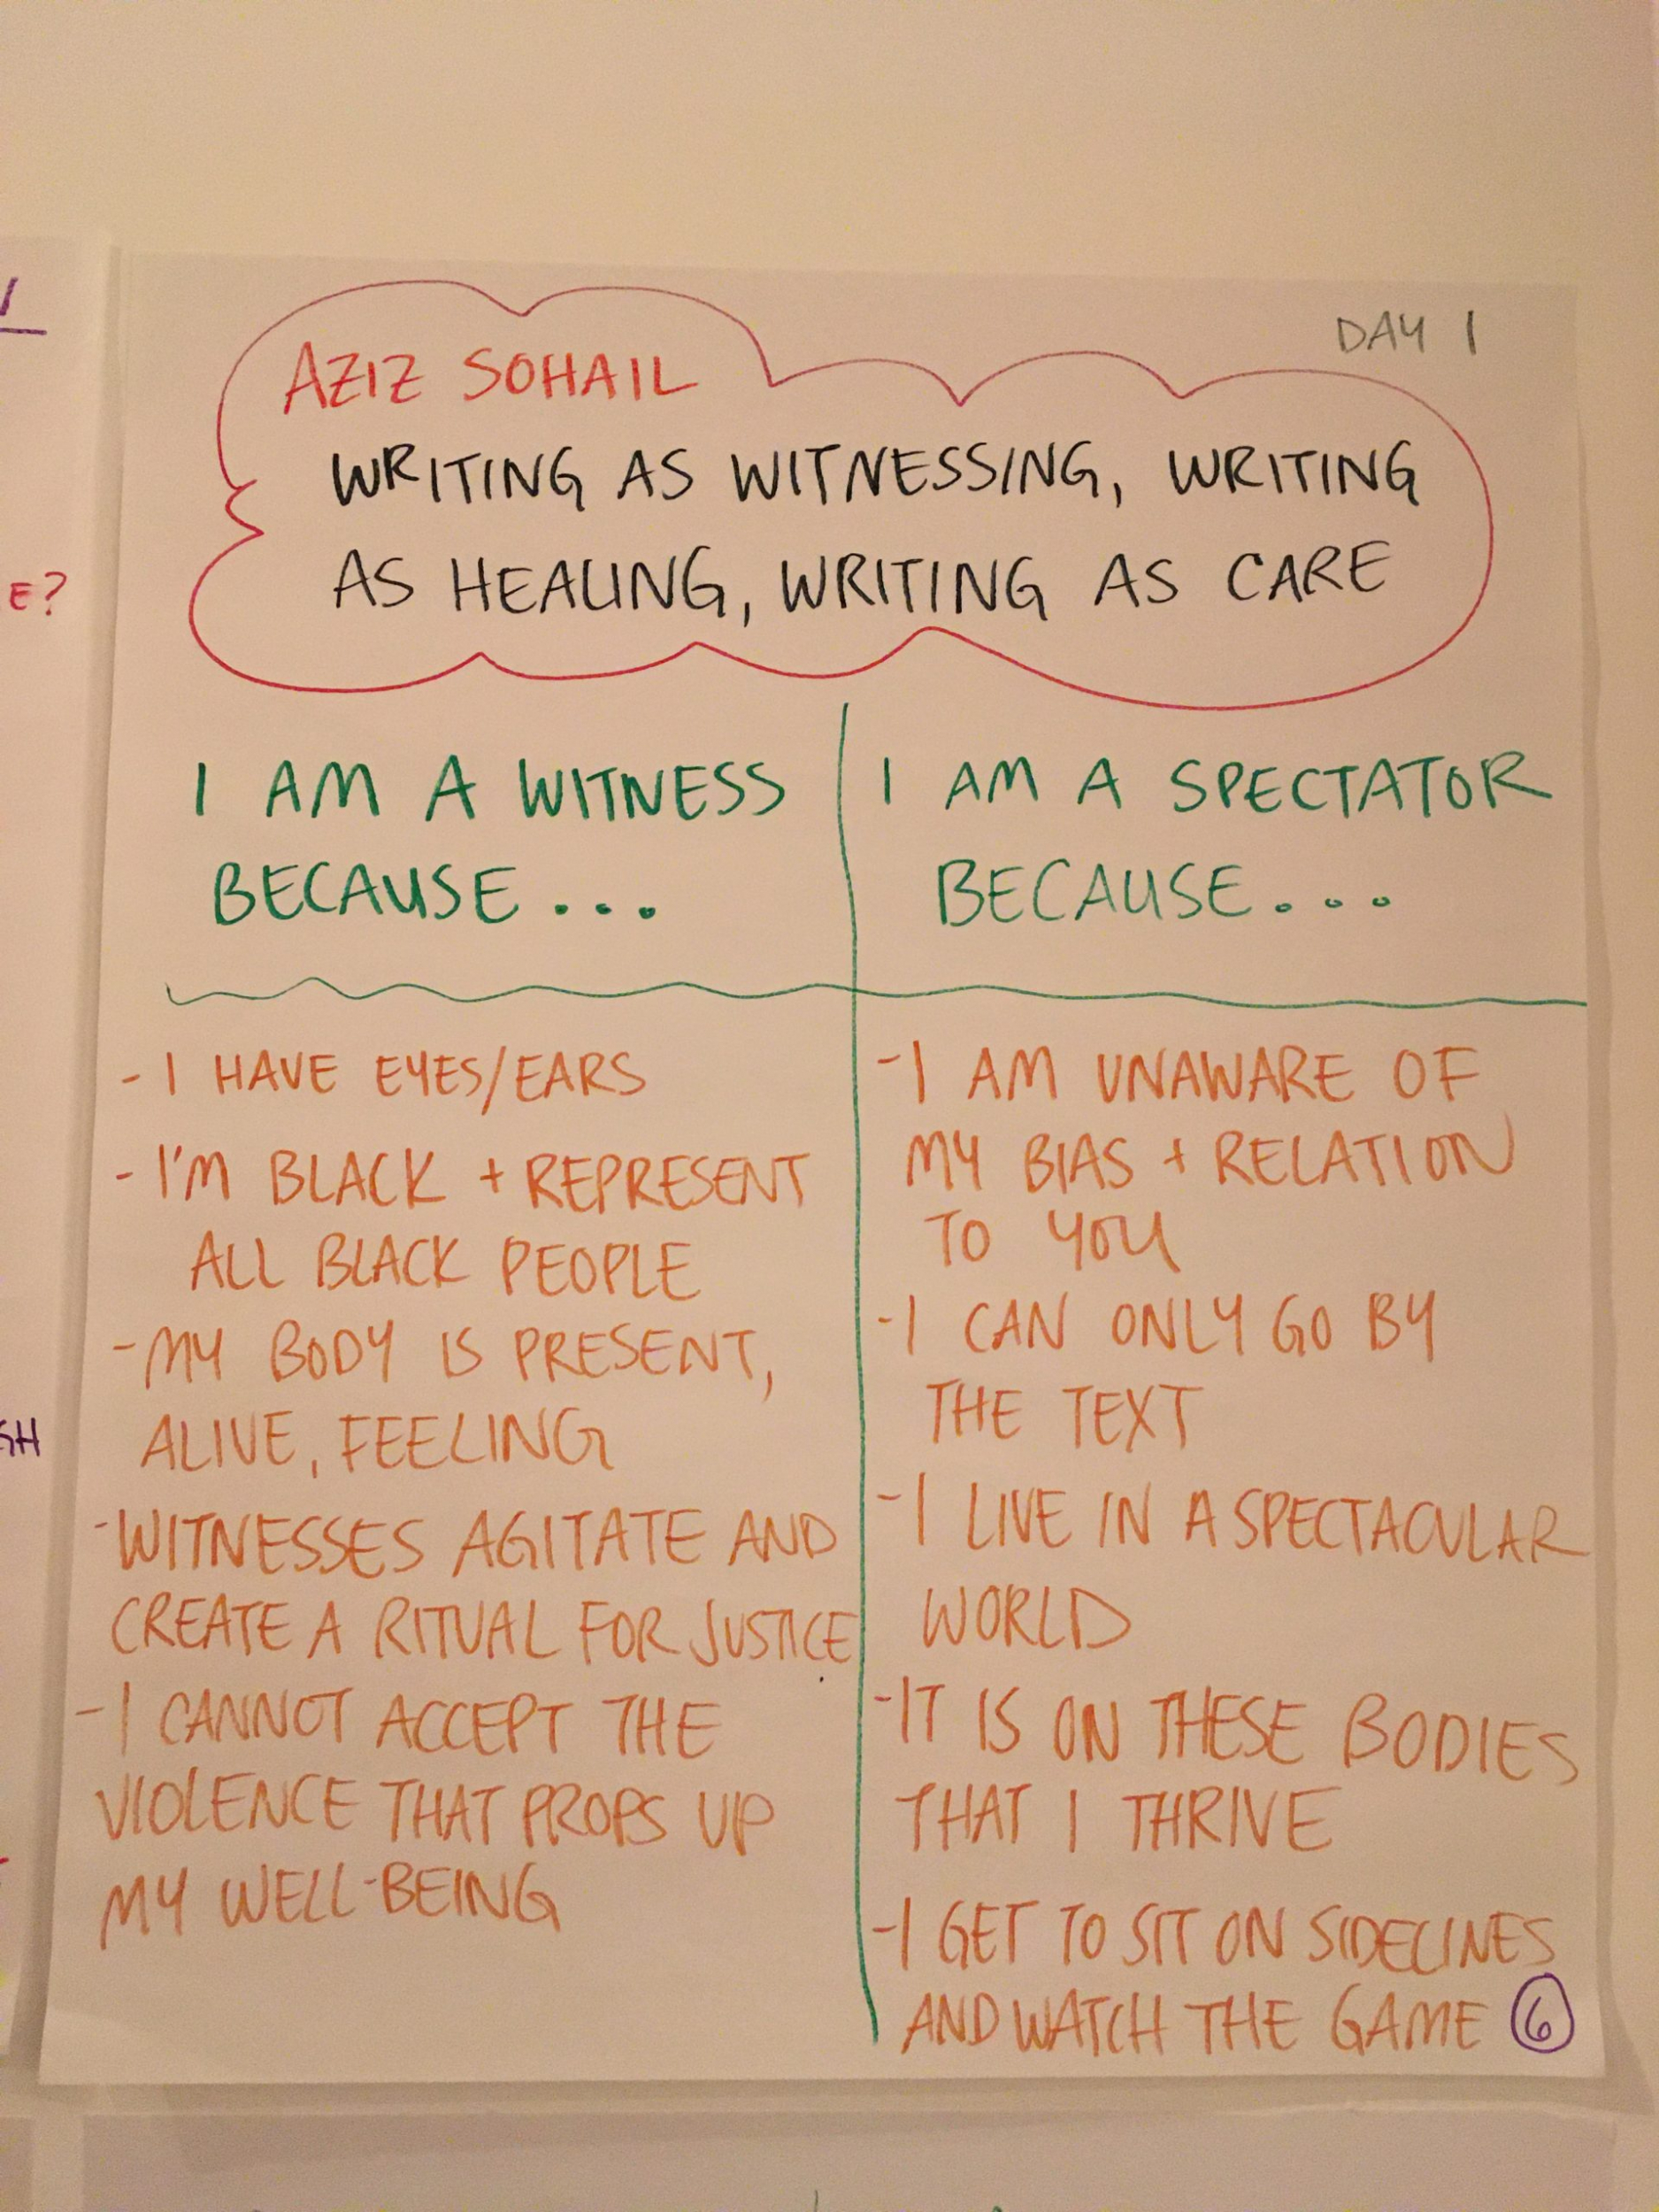 DAY 1
AZIZ SOHAIL
WRITING AS WITNESSING, WRITING
AS HEALING, WRITING AS CARE
I AM A WITNESS
BECAUSE...
- I HAVE EYES/EARS
- I'M BLACK + REPRESENT
ALL BLACK PEOPLE
- MY BODY IS PRESENT,
ALIVE, FEELING
- WITNESSES AGITATE AND
CREATE A RITUAL FOR JUSTICE
- I CANNOT ACCEPT THE
VIOLENCE THAT PROPS UP
MY WELL-BEING
I AM A SPECTATOR
BECAUSE....
- I AM UNAWARE OF
MY BIAS + RELATION
TO YOU
- I CAN ONLY GO BY
THE TEXT
- I LIVE IN A SPECTACULAR
WORLD
- IT IS ON THESE BODIES
THAT I THRIVE
- I GET TO SIT ON SIDELINES
AND WATCH THE GAME 6
E?
SH